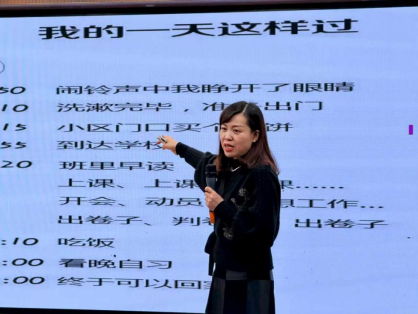 我的一天这样过
50 闹铃声中我睁开了眼睛
10 洗漱完毕，准 出门
15 小区门口买个 饼
55 到达学校
20 班里早读
上课、上 ……
开会、动员 工作…
出卷子、判 出卷子……
:10 吃饭
:00 看晚自习
:00 终于可以回